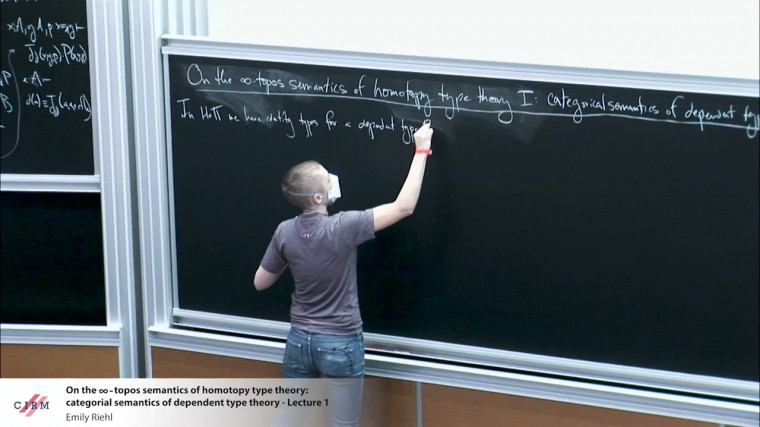 x:A, y:A, p:x=y ⊢
P(x,y,p)
On the ∞-topos semantics of homotopy type theory I: categorical semantics of dependent ty
In HoTT we have identity types for a dependent type
CIRM
On the ∞-topos semantics of homotopy type theory:
categorial semantics of dependent type theory - Lecture 1
Emily Riehl